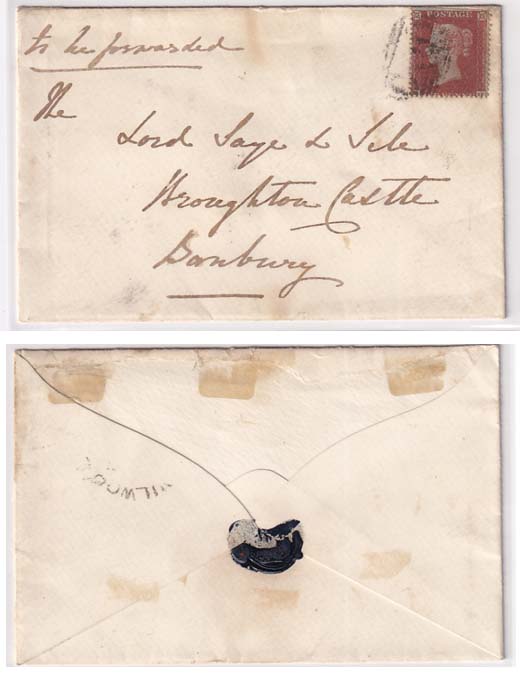 to be forwarded
The
Lord Saye & Sele
Broughton Castle
Banbury
POSTAGE